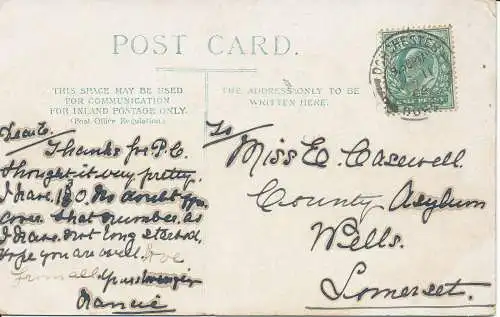 POST CARD.
THIS SPACE MAY BE USED
FOR COMMUNICATION
FOR INLAND POSTAGE ONLY.
(Post Office Regulation.)
THE ADDRESS ONLY TO BE
WRITTEN HERE.
DORCHESTER
Dear E
Thanks for P.C.
thought it very pretty.
I have 130. No doubt you
cover that number. as
I have not long started,
hope you are well. Love
From all. Yours
Nancie
To
Miss E. Casewell.
County Asylum
Wells.
Somerset.